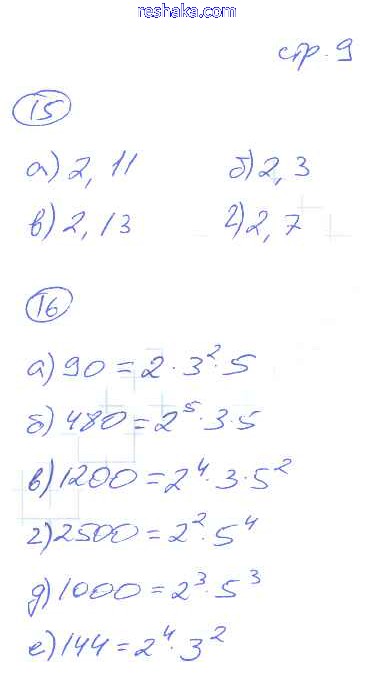 reshaka.com
стр. 9
15
а) 2, 11 б) 2, 3
в) 2, 13 г) 2, 7
16
а) 90 = 2 · 3² · 5
б) 480 = 2⁵ · 3 · 5
в) 1200 = 2⁴ · 3 · 5²
г) 2500 = 2² · 5⁴
д) 1000 = 2³ · 5³
е) 144 = 2⁴ · 3²